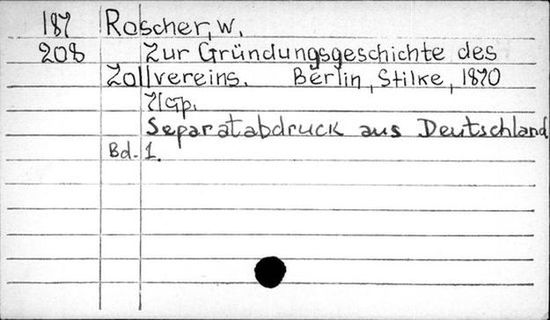 187 Roscher, W.
208 Zur Gründungsgeschichte des
Zollvereins. Berlin, Stilke, 1870
Separatabdruck aus Deutschland
Bd. 1.